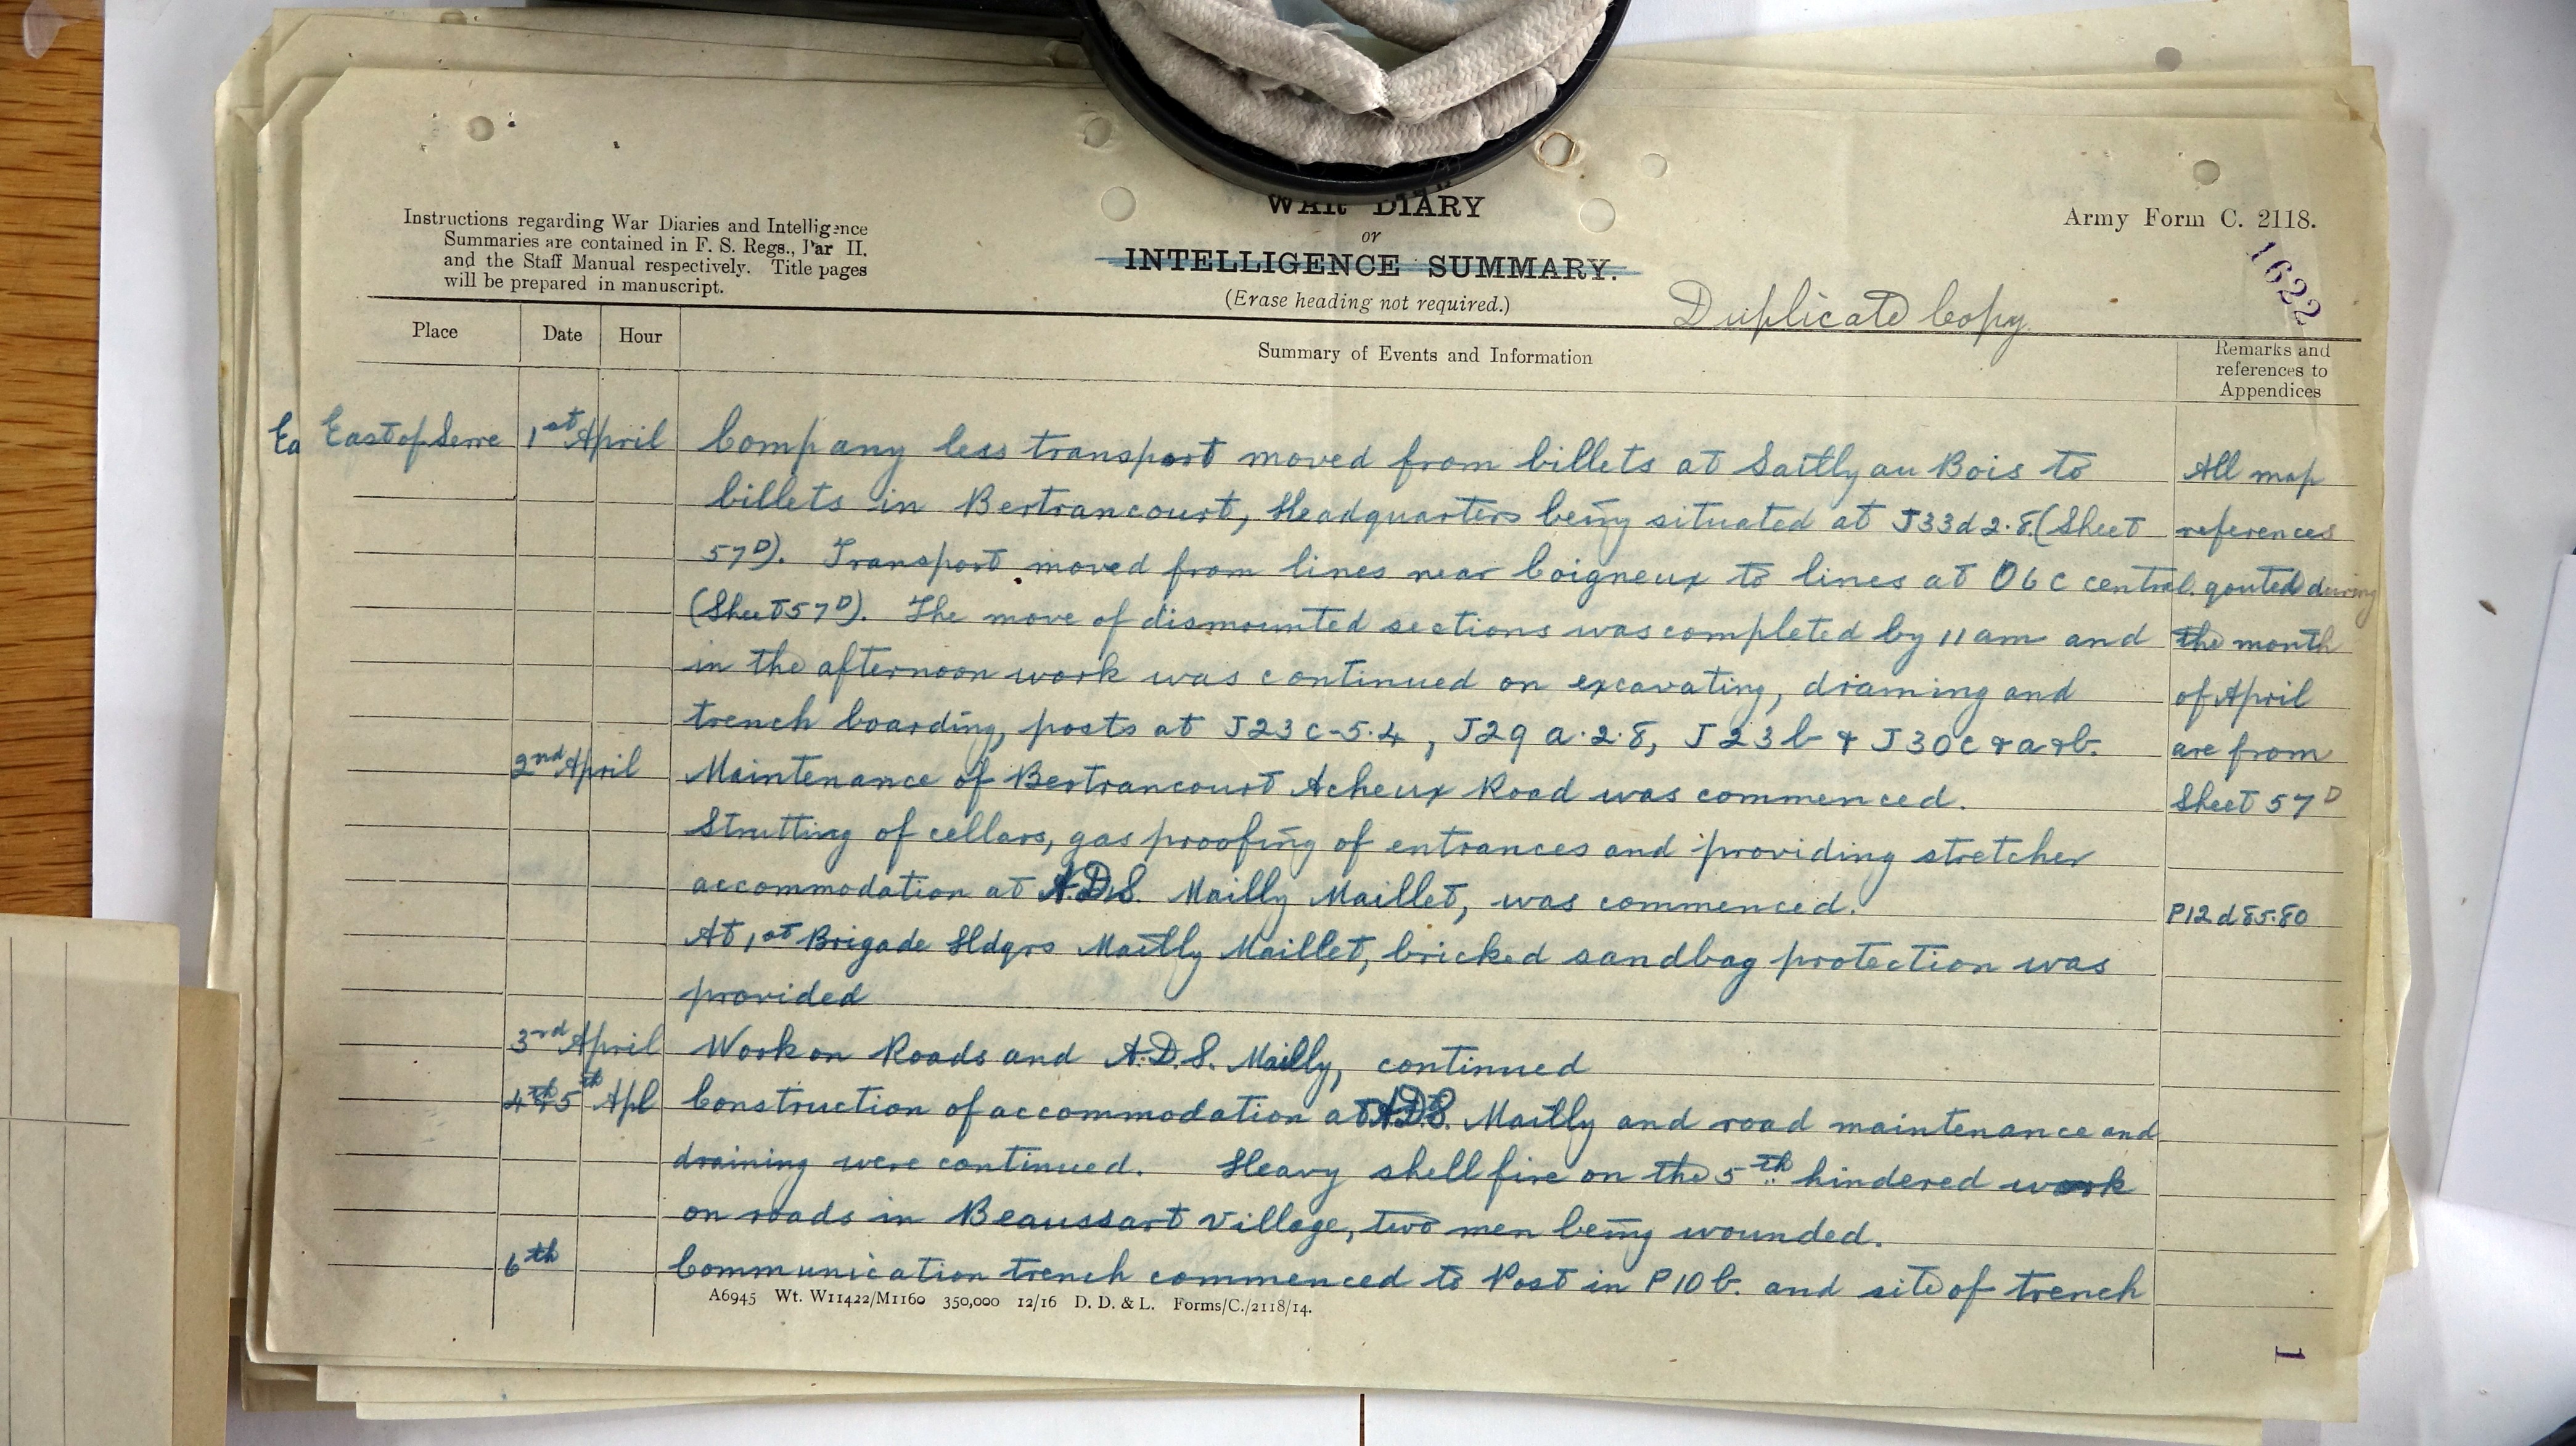 WAR DIARY
or
INTELLIGENCE SUMMARY.
(Erase heading not required.)
Instructions regarding War Diaries and Intelligence
Summaries are contained in F. S. Regs., Par II.
and the Staff Manual respectively. Title pages
will be prepared in manuscript.
Army Form C. 2118.
1622
Duplicate Copy
Place
Date
Hour
Summary of Events and Information
Remarks and
references to
Appendices
Ea
East of Serre 1st April Company less transport moved from billets at Sailly au Bois to
billets in Bertrancourt, Headquarters being situated at J33d2.8.(Sheet
57D). Transport moved from lines near Coigneux to lines at O6c central.
(Sheet 57D). The move of dismounted sections was completed by 11am and
in the afternoon work was continued on excavating, draining and
trench boarding, posts at J23c-5.4, J29a.2.8, J23b & J30c & a & b.
2nd April Maintenance of Bertrancourt Acheux Road was commenced.
Strutting of cellars, gas proofing of entrances and providing stretcher
accommodation at A.D.S. Mailly Maillet, was commenced.
At 1st Brigade Hdqrs Mailly Maillet, bricked sandbag protection was
provided
3rd April Work on Roads and A.D.S. Mailly, continued
4th & 5th Apl Construction of accommodation at A.D.S. Mailly and road maintenance and
draining were continued. Heavy shell fire on the 5th hindered work
on roads in Beaussart Village, two men being wounded.
6th Communication trench commenced to Post in P10b. and site of trench
All map
references
qouted during
the month
of April
are from
Sheet 57D
P12d85.80
A6945 Wt. W11422/M1160 350,000 12/16 D. D. & L. Forms/C./2118/14.
1